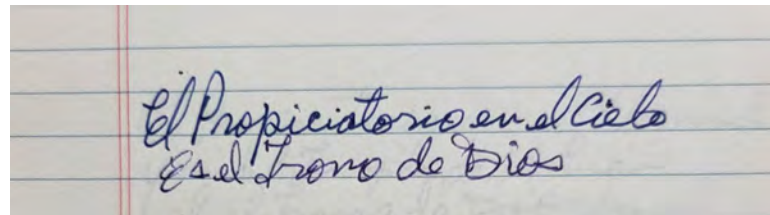 El Propiciatorio en el Cielo
Es el Trono de Dios